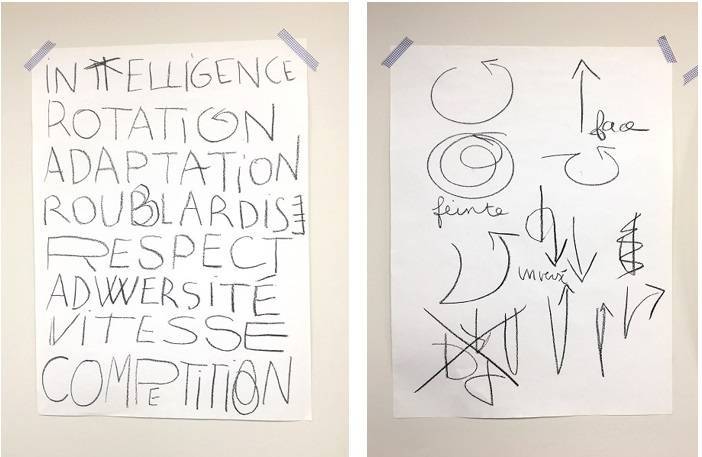 INTELLIGENCE
ROTATION
ADAPTATION
ROUBLARDISE
RESPECT
ADVERSITÉ
VITESSE
COMPETITION
face
feinte